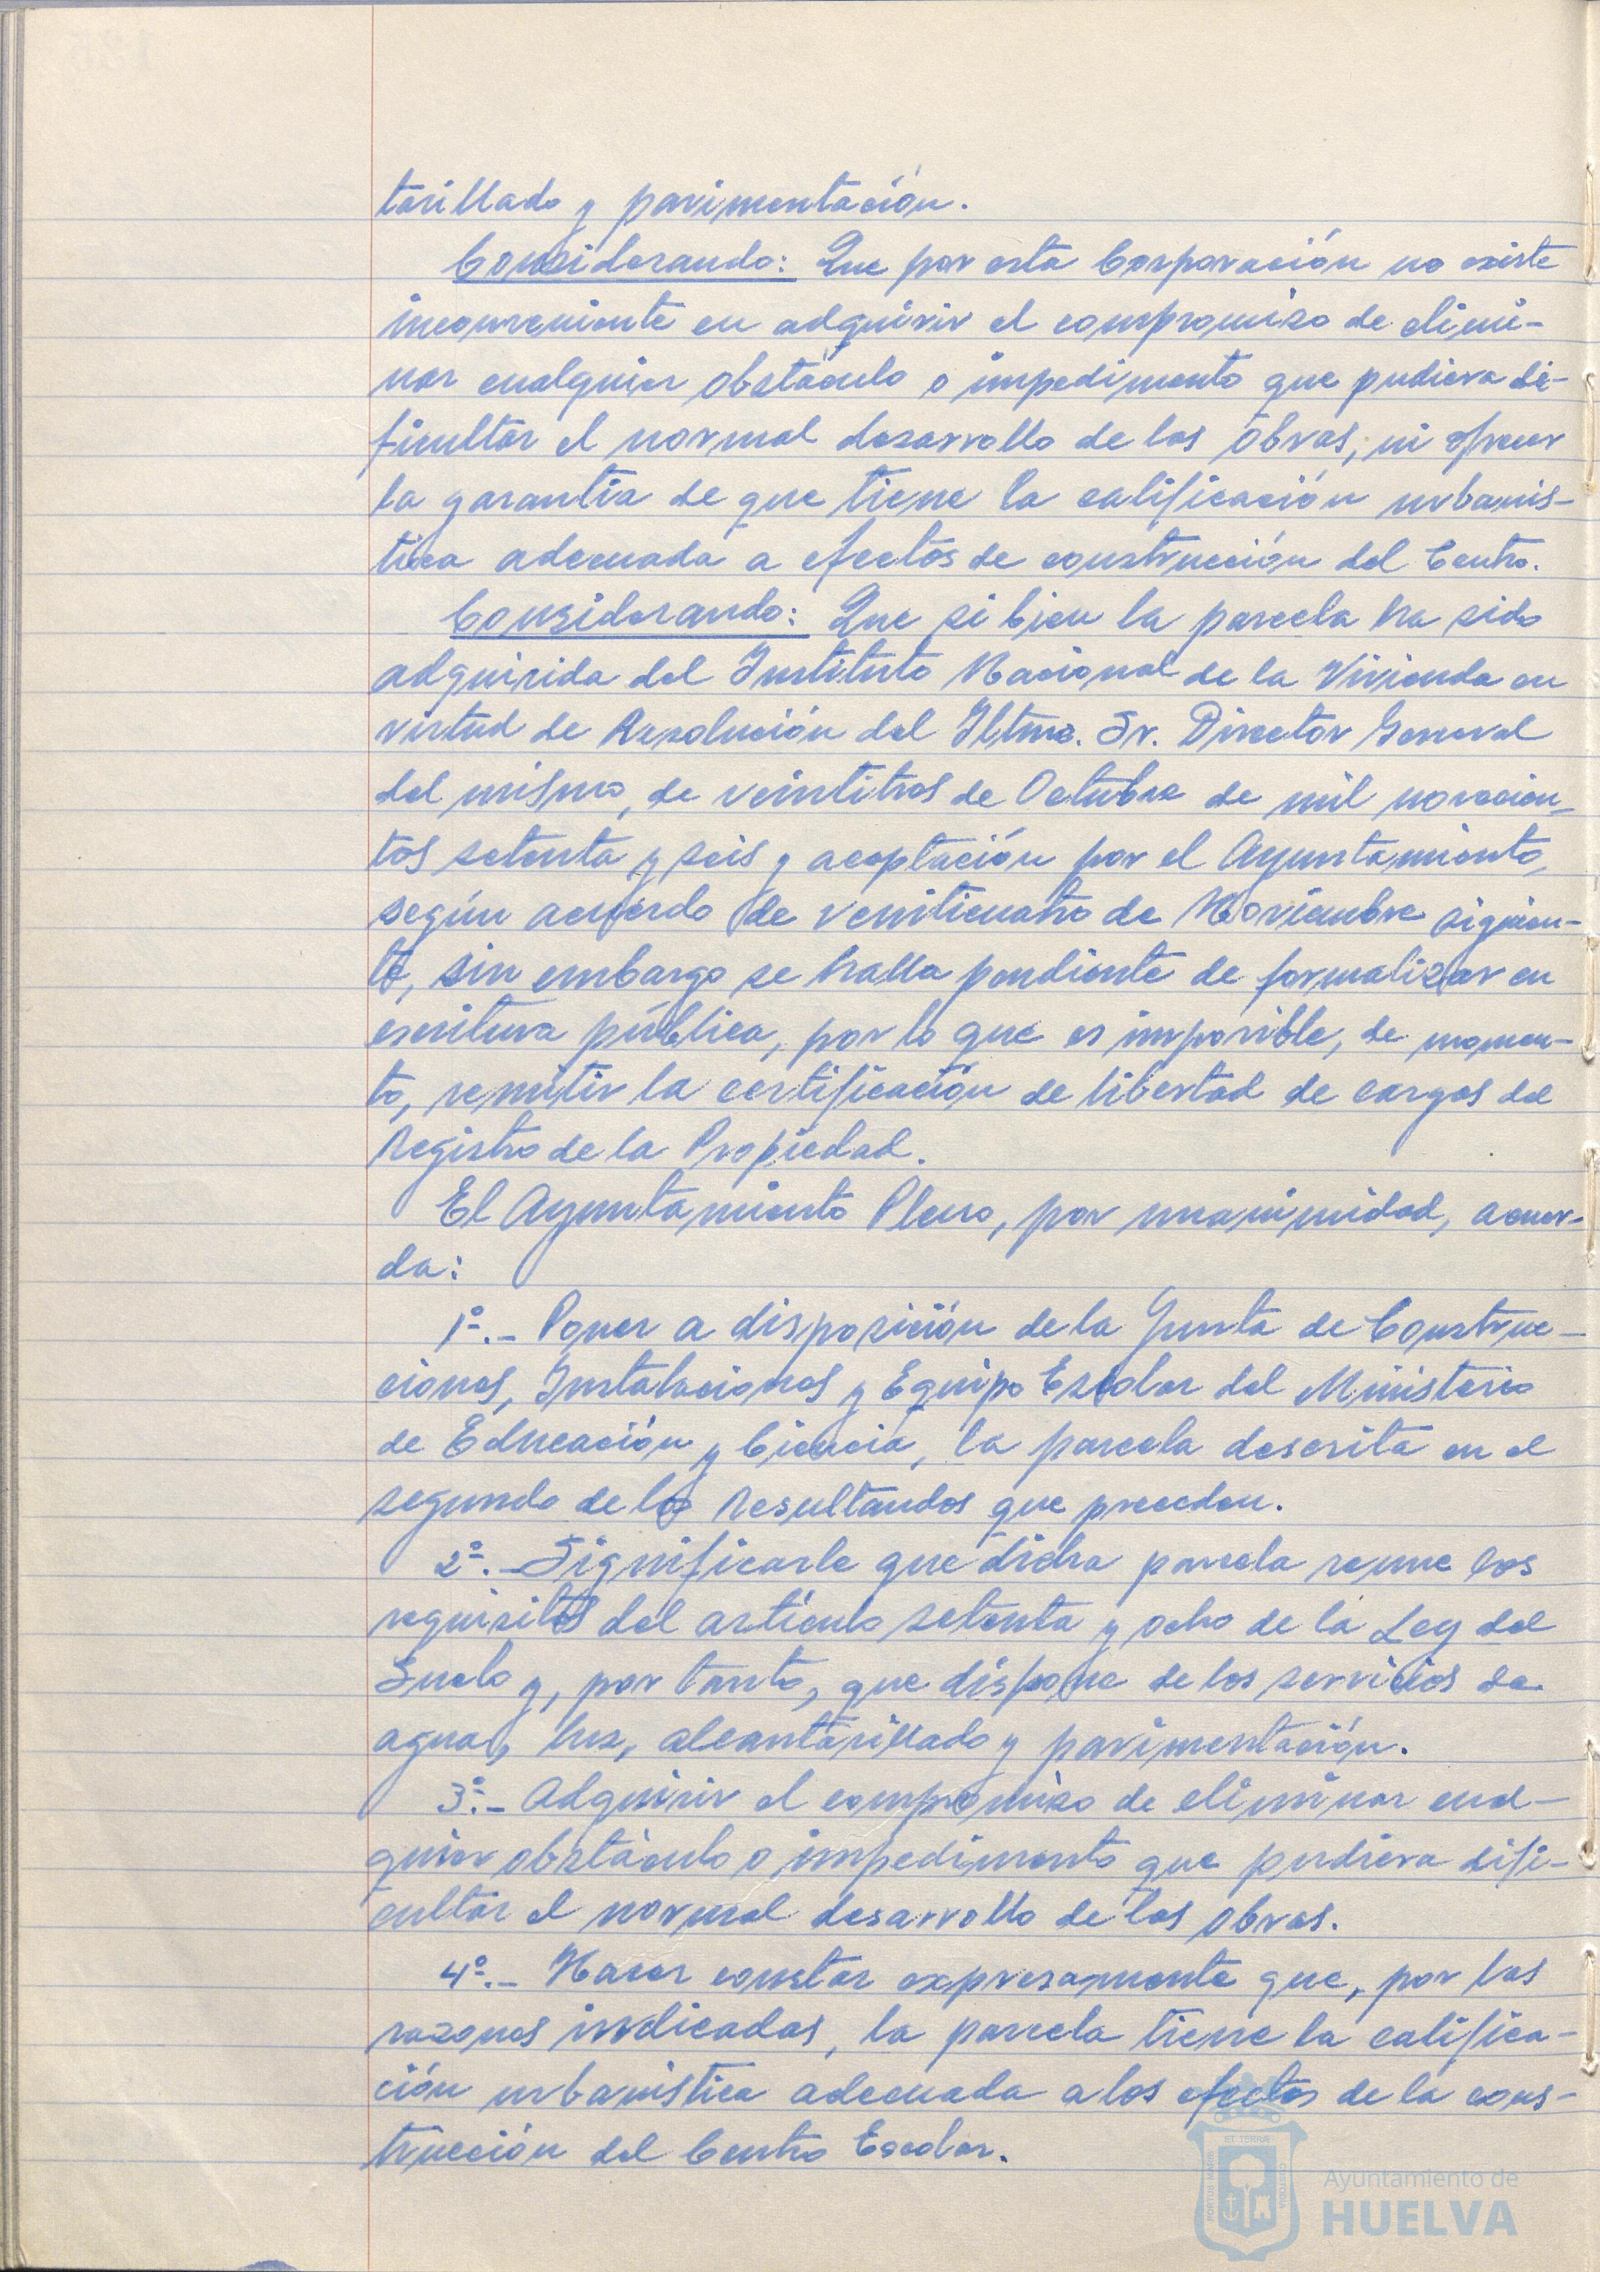 tarillado y pavimentación.
Considerando: Que por esta Corporación no existe
inconveniente en adquirir el compromiso de elimi-
nar cualquier obstáculo o impedimento que pudiera di-
ficultar el normal desarrollo de las obras, ni ofrecer
la garantía de que tiene la calificación urbanís-
tica adecuada a efectos de construcción del Centro.
Considerando: Que si bien la parcela ha sido
adquirida del Instituto Nacional de la Vivienda en
virtud de Resolución del Iltmo. Sr. Director General
del mismo, de veintitres de Octubre de mil novecien-
tos setenta y seis y aceptación por el Ayuntamiento,
según acuerdo de veinticuatro de Noviembre siguien-
te, sin embargo se halla pendiente de formalizar en
escritura pública, por lo que es imposible, de momen-
to, remitir la certificación de libertad de cargas del
Registro de la Propiedad.
El Ayuntamiento Pleno, por unanimidad, acuer-
da:
1º.- Poner a disposición de la Junta de Construc-
ciones, Instalaciones y Equipo Escolar del Ministerio
de Educación y Ciencia, la parcela descrita en el
segundo de los Resultandos que preceden.
2º.- Significarle que dicha parcela reune los
requisitos del artículo setenta y ocho de la Ley del
Suelo y, por tanto, que dispone de los servicios de
agua, luz, alcantarillado y pavimentación.
3º.- Adquirir el compromiso de eliminar cual-
quier obstáculo o impedimento que pudiera difi-
cultar el normal desarrollo de las obras.
4º.- Hacer constar expresamente que, por las
razones indicadas, la parcela tiene la califica-
ción urbanística adecuada a los efectos de la cons-
trucción del Centro Escolar.
PORTUS MARIS ET TERRAE CUSTODIA
Ayuntamiento de
HUELVA